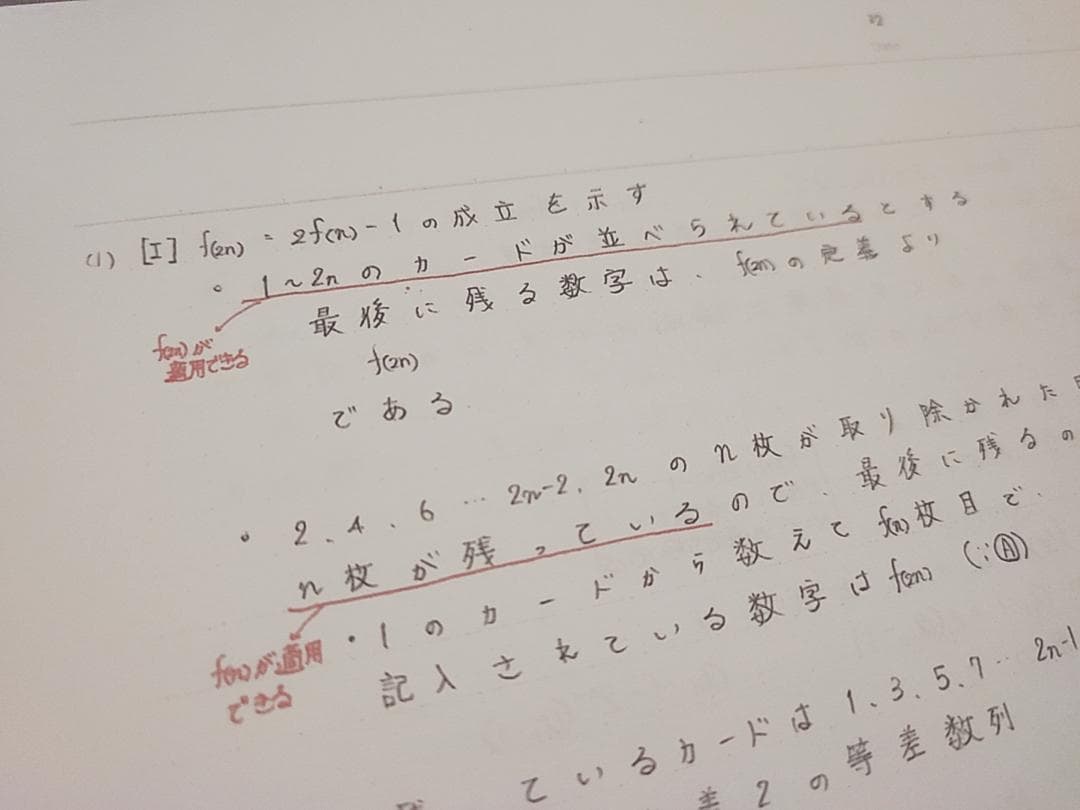 (1) [I] f(2n) = 2f(n) - 1 の成立を示す
。1~2nのカードが並べられているとする
最後に残る数字は、f(2n)の定義より
f(2n)が
適用できる
f(2n)
である
• 2、4、6 … 2n-2、2nのn枚が取り除かれた
n枚が残っているので、最後に残るの
• 1のカードから数えてf(n)枚目で、
f(n)が適用
できる
記入されている数字はf(2n) (∵Ⓐ)
ているカードは1、3、5、7 … 2n-1
差2の等差数列